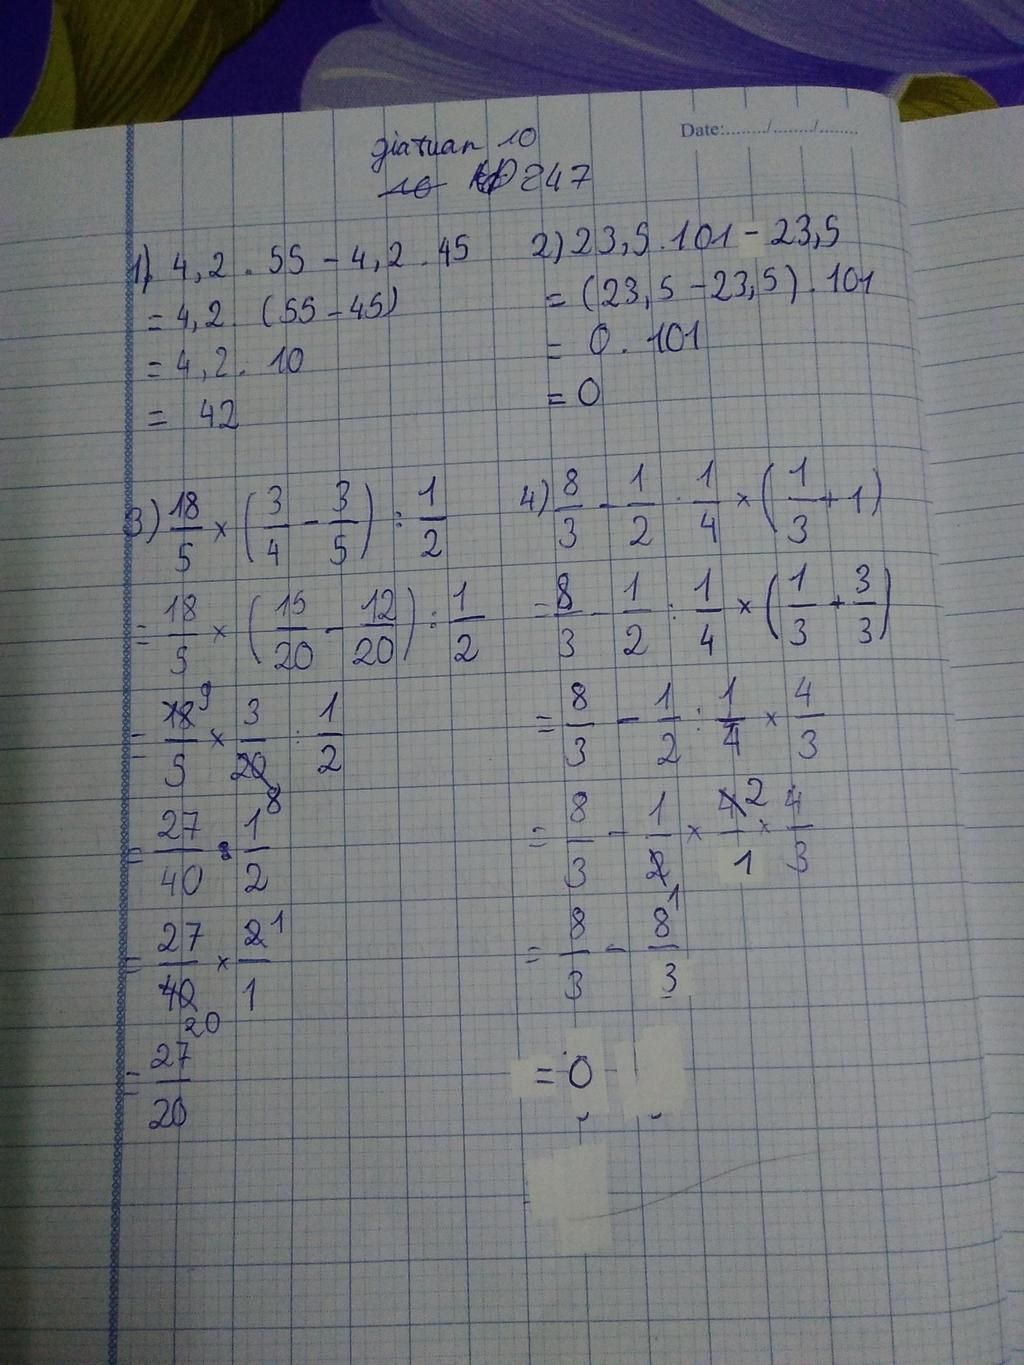 Date:......./......./.......
giatuan 10
247
1) 4,2 . 55 - 4,2 . 45
= 4,2 . (55 - 45)
= 4,2 . 10
= 42
2) 23,5 . 101 - 23,5
= (23,5 - 23,5) . 101
= 0 . 101
= 0
3) 18/5 × (3/4 - 3/5) : 1/2
= 18/5 × (15/20 - 12/20) : 1/2
= 18/5 × 3/20 : 1/2
= 27/40 : 1/2
= 27/40 × 2/1
= 27/20
4) 8/3 - 1/2 : 1/4 × (1/3 + 1)
= 8/3 - 1/2 : 1/4 × (1/3 + 3/3)
= 8/3 - 1/2 : 1/4 × 4/3
= 8/3 - 1/2 × 4/1 × 4/3
= 8/3 - 8/3
= 0